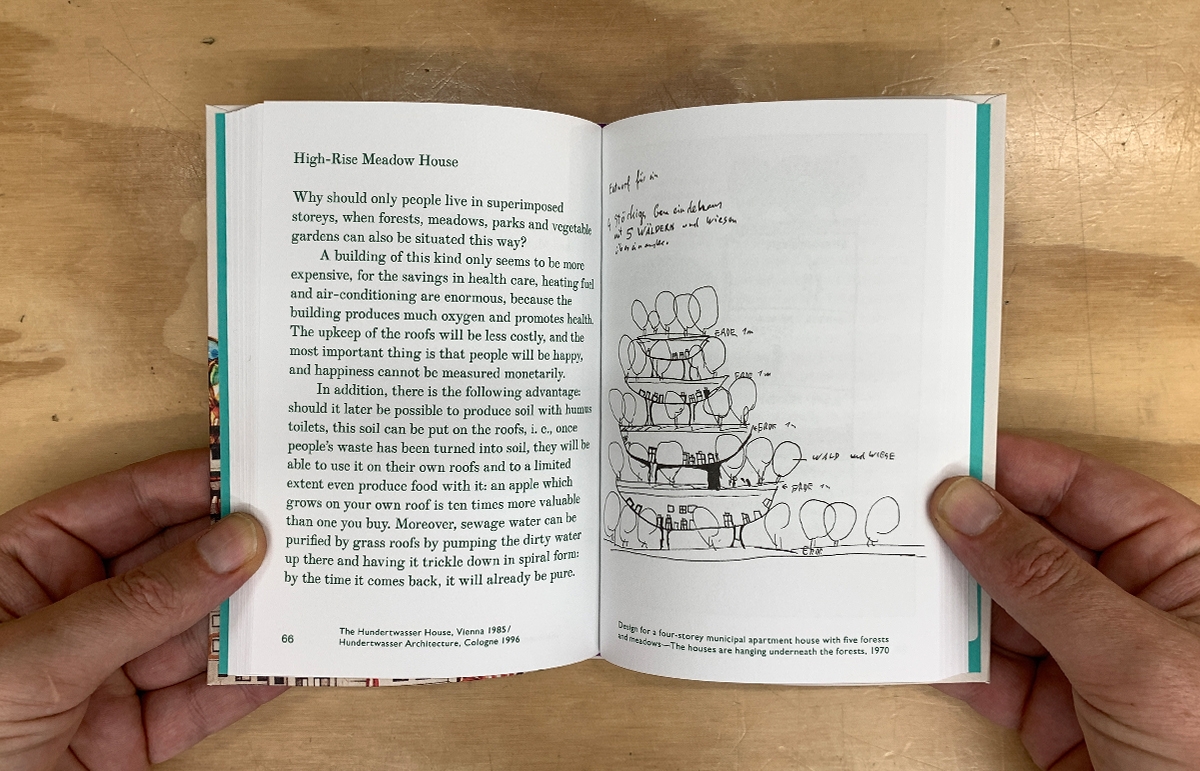 High-Rise Meadow House
Why should only people live in superimposed
storeys, when forests, meadows, parks and vegetable
gardens can also be situated this way?
A building of this kind only seems to be more
expensive, for the savings in health care, heating fuel
and air-conditioning are enormous, because the
building produces much oxygen and promotes health.
The upkeep of the roofs will be less costly, and the
most important thing is that people will be happy,
and happiness cannot be measured monetarily.
In addition, there is the following advantage:
should it later be possible to produce soil with humus
toilets, this soil can be put on the roofs, i. e., once
people's waste has been turned into soil, they will be
able to use it on their own roofs and to a limited
extent even produce food with it: an apple which
grows on your own roof is ten times more valuable
than one you buy. Moreover, sewage water can be
purified by grass roofs by pumping the dirty water
up there and having it trickle down in spiral form:
by the time it comes back, it will already be pure.
66
The Hundertwasser House, Vienna 1985/
Hundertwasser Architecture, Cologne 1996
Entwurf für ein
4 stöckiges Gemeindehaus
mit 5 WÄLDERN und Wiesen
übereinander.
ERDE 1m
ERDE 1m
ERDE 1m
WALD und WIESE
ERDE 1m
Erde
Design for a four-storey municipal apartment house with five forests
and meadows—The houses are hanging underneath the forests, 1970